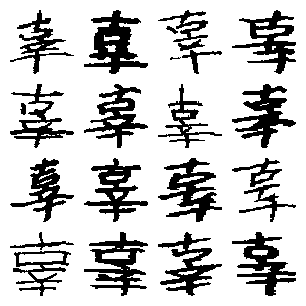 辜辜辜辜
辜辜辜辜
辜辜辜辜
辜辜辜辜